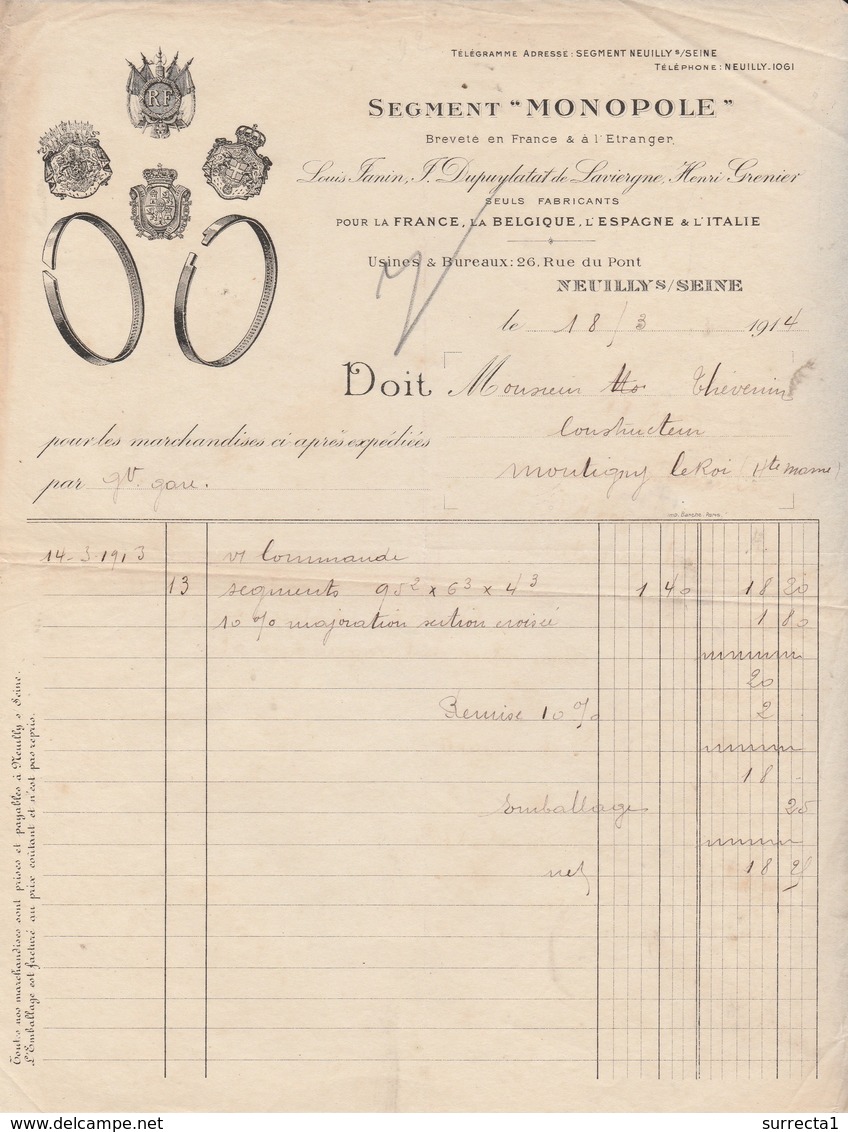 TÉLÉGRAMME ADRESSE : SEGMENT NEUILLY S/SEINE
TÉLÉPHONE : NEUILLY-1061
RF
SEGMENT "MONOPOLE"
Breveté en France & à l'Etranger.
Louis Janin, F. Dupuylatat de Laviergne, Henri Grenier
SEULS FABRICANTS
POUR LA FRANCE, LA BELGIQUE, L'ESPAGNE & L'ITALIE
Usines & Bureaux : 26, Rue du Pont
NEUILLY S/SEINE
le 18/3 1914
Doit Monsieur Thévenin
Constructeur
Montigny le Roi (Hte Marne)
pour les marchandises ci après expédiées
par gv. gare.
14-3-1913 v/ Commande
13 segments 95² x 6³ x 4³ 1 40 18 20
10% majoration section croisée 1 80
20
Remise 10% 2
18 -
Emballage 25
net 18 25
Toutes nos marchandises sont prises et payables à Neuilly s/Seine.
L'Emballage est facturé au prix coûtant et n'est pas repris.
www.delcampe.net
surrecta1